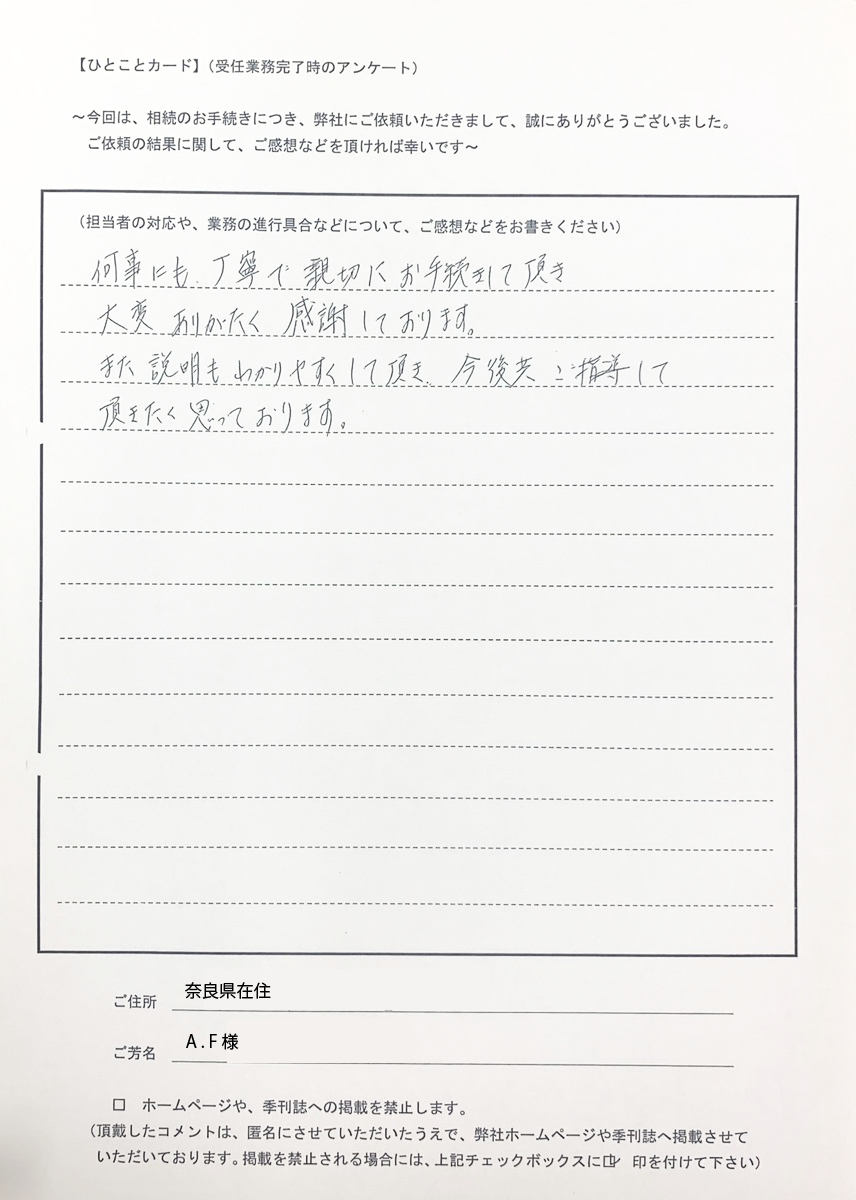 【ひとことカード】（受任業務完了時のアンケート）
～今回は、相続のお手続きにつき、弊社にご依頼いただきまして、誠にありがとうございました。
ご依頼の結果に関して、ご感想などを頂ければ幸いです～
（担当者の対応や、業務の進行具合などについて、ご感想などをお書きください）
何事にも、丁寧で親切にお手続きして頂き
大変ありがたく感謝しております。
また説明もわかりやすくして頂き、今後共ご指導して
頂きたく思っております。
ご住所 奈良県在住
ご芳名 A.F様
□ ホームページや、季刊誌への掲載を禁止します。
（頂戴したコメントは、匿名にさせていただいたうえで、弊社ホームページや季刊誌へ掲載させて
いただいております。掲載を禁止される場合には、上記チェックボックスに☑ 印を付けて下さい）